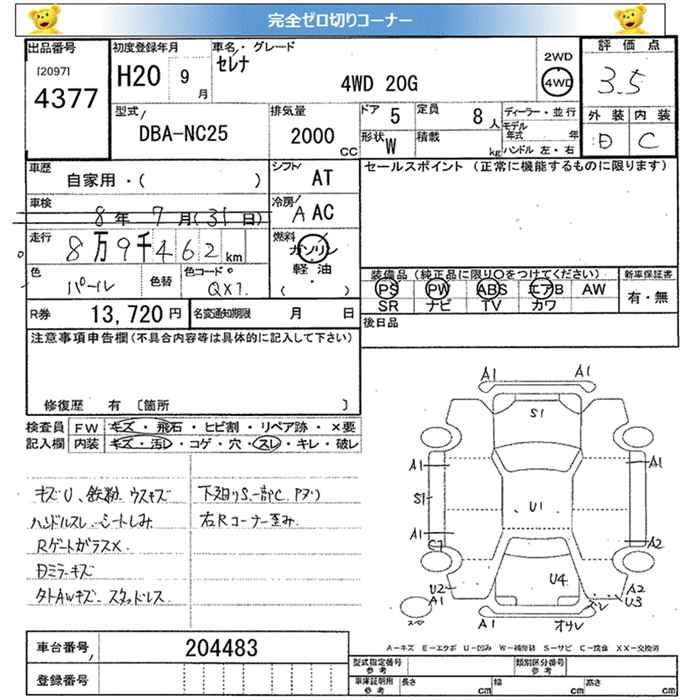 完全ゼロ切りコーナー
出品番号 初度登録年月 車名・グレード 評価点
[2097] H20 9月 セレナ 2WD
4377 4WD 20G 4WD 3.5
外装 内装
D C
型式 排気量 ドア 5 定員 8人 ディーラー・並行
DBA-NC25 2000CC 形状 W 積載 kg モデル年式 年
ハンドル 左・右
車歴 シフト セールスポイント (正常に機能するものに限ります)
自家用・( ) AT
車検 8年 7月(31日) 冷房 A AC
走行 8万9千462km 燃料 ガソリン
軽油
( ・ )
色 パール 色替 色コード QX1 装備品(純正品に限り○をつけてください) 新車保証書
PS PW ABS エアB AW 有・無
SR ナビ TV カワ
R券 13,720円 名変通知期限 月 日
後日品
注意事項申告欄(不具合内容等は具体的に記入して下さい)
修復歴 有 [箇所 ]
検査員 FW キズ・飛石・ヒビ割・リペア跡・×要
記入欄 内装 キズ・汚レ・コゲ・穴・スレ・キレ・破レ
キズU、鉄粉 ウスキズ 下廻りS.一部C.アブリ
ハンドルスレ シートしみ 右Rコーナー歪み
RゲートガラスX
Dミラーキズ
タトAWキズ スタッドレス
A1 A1
S1
A1 A1
S1 U1
A1 A2
U2 A1 U4 A2 U3
A1 オサレ
A-キズ E-エクボ U-凹み W-補修跡 S-サビ C-腐食 XX-交換済
車台番号 204483
登録番号
型式指定番号 参考 類別区分番号 参考
車庫証明用 参考 長さ cm 幅 cm 高さ cm